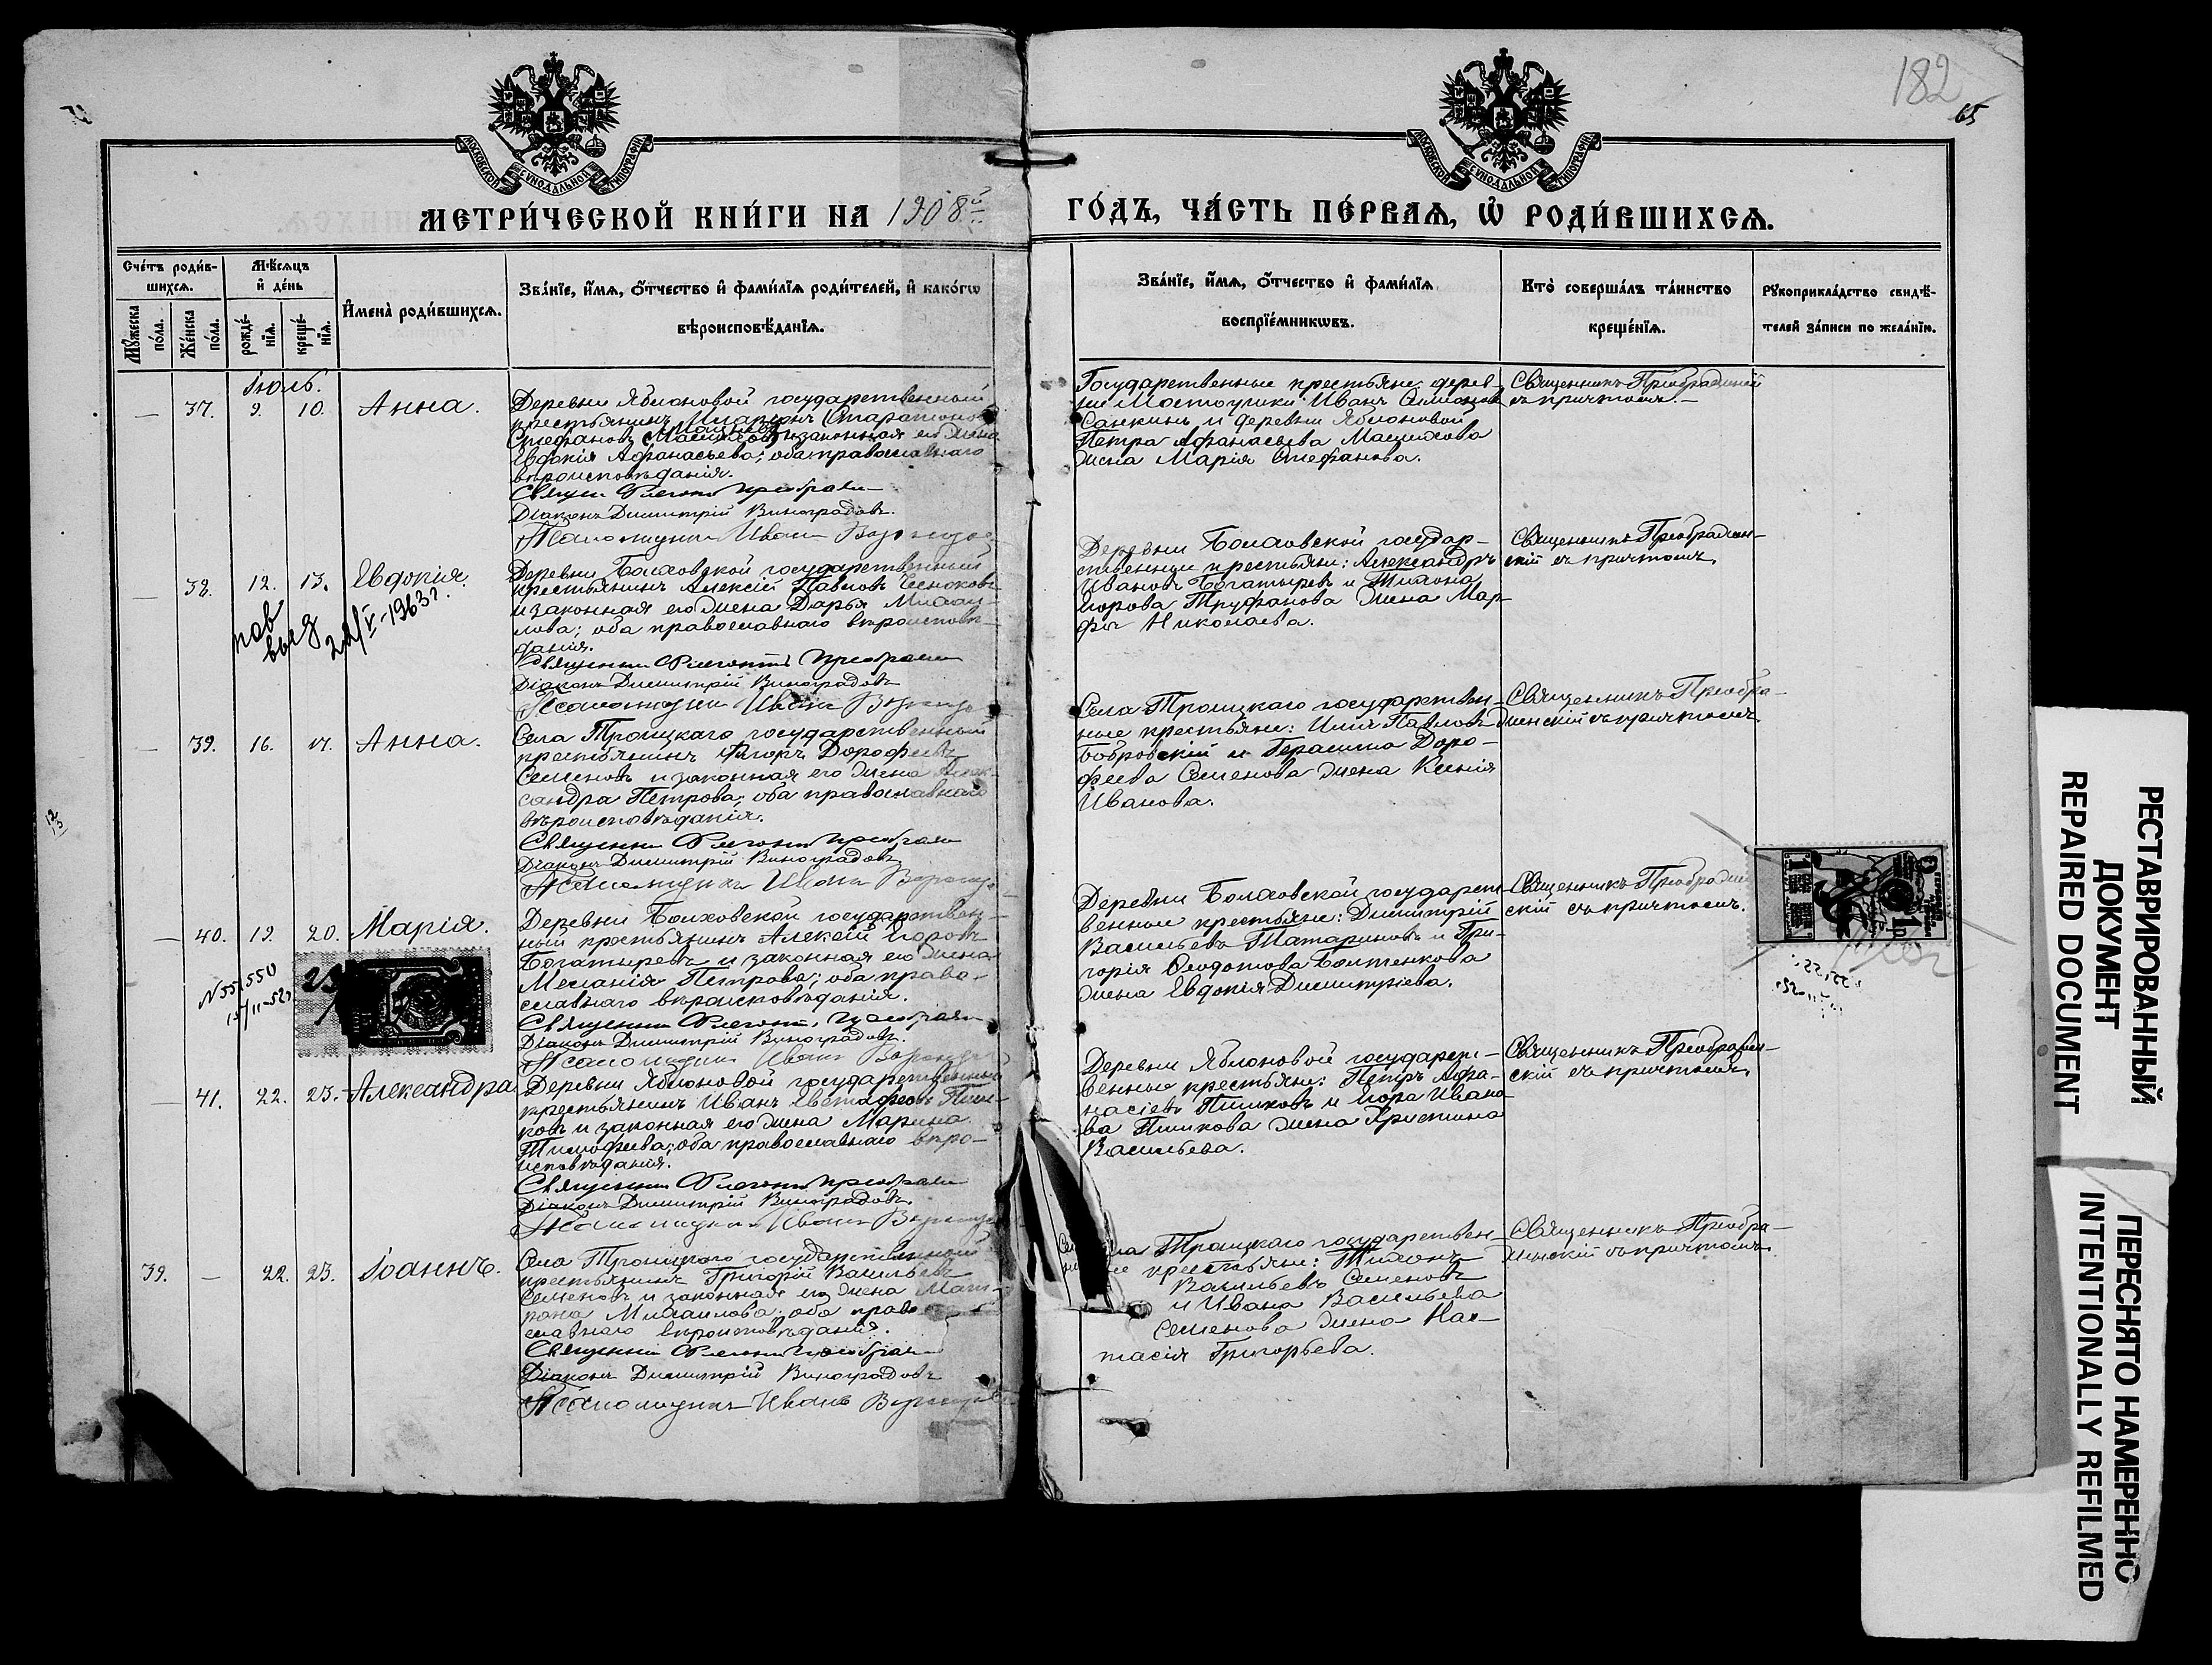 182
65
МОСКОВСКОЙ СѴНОДАЛЬНОЙ ТИПОГРАФІИ
МОСКОВСКОЙ СѴНОДАЛЬНОЙ ТИПОГРАФІИ
МЕТРИ́ЧЕСКОЙ КНИ́ГИ НА 1908й
ГО́ДЪ, ЧА́СТЬ ПЕ́РВАѦ, Ѽ РОДИ́ВШИХСѦ.
Сче́тъ роди́вшихсѧ.
Мꙋ́жеска по́ла.
Же́нска по́ла.
Мѣ́сѧцъ и҆ де́нь
рожде́нїѧ.
креще́нїѧ.
И҆мена̀ роди́вшихсѧ.
Зва́нїе, и҆́мѧ, ѻ҆́тчество и҆ фами́лїѧ роди́телей, и҆ како́гѡ
вѣроисповѣ́данїѧ.
Зва́нїе, и҆́мѧ, ѻ҆́тчество и҆ фами́лїѧ
воспрїе́мникѡвъ.
Кто̀ соверша́лъ та́инство
креще́нїѧ.
Рꙋкоприкла́дство свидѣ́-
телей за́писи по жела́нїю.
Іюль.
— 37. 9. 10. Анна.
Деревни Яблоновой государственный
крестьянинъ
Стефановъ и законная его жена
Евдокія Афанасьева; оба православнаго
вѣроисповѣданія.
Діаконъ Димитрій Виноградовъ.
Псаломщикъ Иванъ
Государственные крестьяне: дерев-
ни Иванъ Симеоновъ
Санкинъ и деревни Яблоновой
Петра Афанасьева
жена Марія Стефанова.
Священникъ Преображенскій
съ причтомъ.—
— 38. 12. 13. Евдокія.
пов
выд
22/V-1963 г.
Деревни Болховской государственный
крестьянинъ Алексій Павловъ Чесноковъ
и законная его жена Дарья Михаи-
лова; оба православнаго вѣроисповѣ-
данія.
Діаконъ Димитрій Виноградовъ
Псаломщикъ Иванъ
Деревни Болховской государ-
ственные крестьяне: Александръ
Ивановъ Богатыревъ и Тихона
Егорова Труфанова жена Мар-
фа Николаева.
Священникъ Преображен-
скій съ причтомъ.
— 39. 16. 17. Анна.
Села Троицкаго государственный
крестьянинъ Егоръ Дорофеевъ
Семеновъ и законная его жена Алек-
сандра Петрова; оба православнаго
вѣроисповѣданія.
Діаконъ Димитрій Виноградовъ
Псаломщикъ Иванъ
Села Троицкаго государствен-
ные крестьяне: Илія Павловъ
Бобровскій и Герасима Доро-
феева Семенова жена Ксенія
Иванова.
Священникъ Преобра-
женскій съ причтомъ.
— 40. 19. 20. Марія.
N 551550
Деревни Болховской государствен-
ный крестьянинъ Алексій Егоровъ
Богатыревъ и законная его жена
Меланія Петрова; оба право-
славнаго вѣроисповѣданія.
Діаконъ Димитрій Виноградовъ.
Псаломщикъ Иванъ
Деревни Болховской государст-
венные крестьяне: Димитрій
Васильевъ Татариновъ и Гри-
горія Ѳеодотова Болтенкова
жена Евдокія Димитріева.
Священникъ Преображен-
скій съ причтомъ.
— 41. 22. 23. Александра
Деревни Яблоновой государственный
крестьянинъ Иванъ Евстафіевъ Пиш-
ковъ и законная его жена Марина
Тимофеева; оба православнаго вѣро-
исповѣданія.
Діаконъ Димитрій Виноградовъ.
Псаломщикъ Иванъ
Деревни Яблоновой государст-
венные крестьяне: Петръ Афа-
насіевъ Пишковъ и Егора Ивано-
ва Пишкова жена Христина
Васильева.
Священникъ Преображен-
скій съ причтомъ.
39. — 22. 23. Іоаннъ.
Села Троицкаго государственный
крестьянинъ Григорій Васильевъ
Семеновъ и законная его жена Мат-
рона Михаилова; оба право-
славнаго вѣроисповѣданія.
Діаконъ Димитрій Виноградовъ
Псаломщикъ Иванъ
Троицкаго государствен-
крестьяне: Тихонъ
Васильевъ Семеновъ
и Ивана Васильева
Семенова жена Нас-
тасія Григорьева.
Священникъ Преобра-
женскій съ причтомъ.
РЕСТАВРИРОВАННЫЙ
ДОКУМЕНТ
REPAIRED DOCUMENT
ПЕРЕСНЯТО НАМЕРЕННО
INTENTIONALLY REFILMED